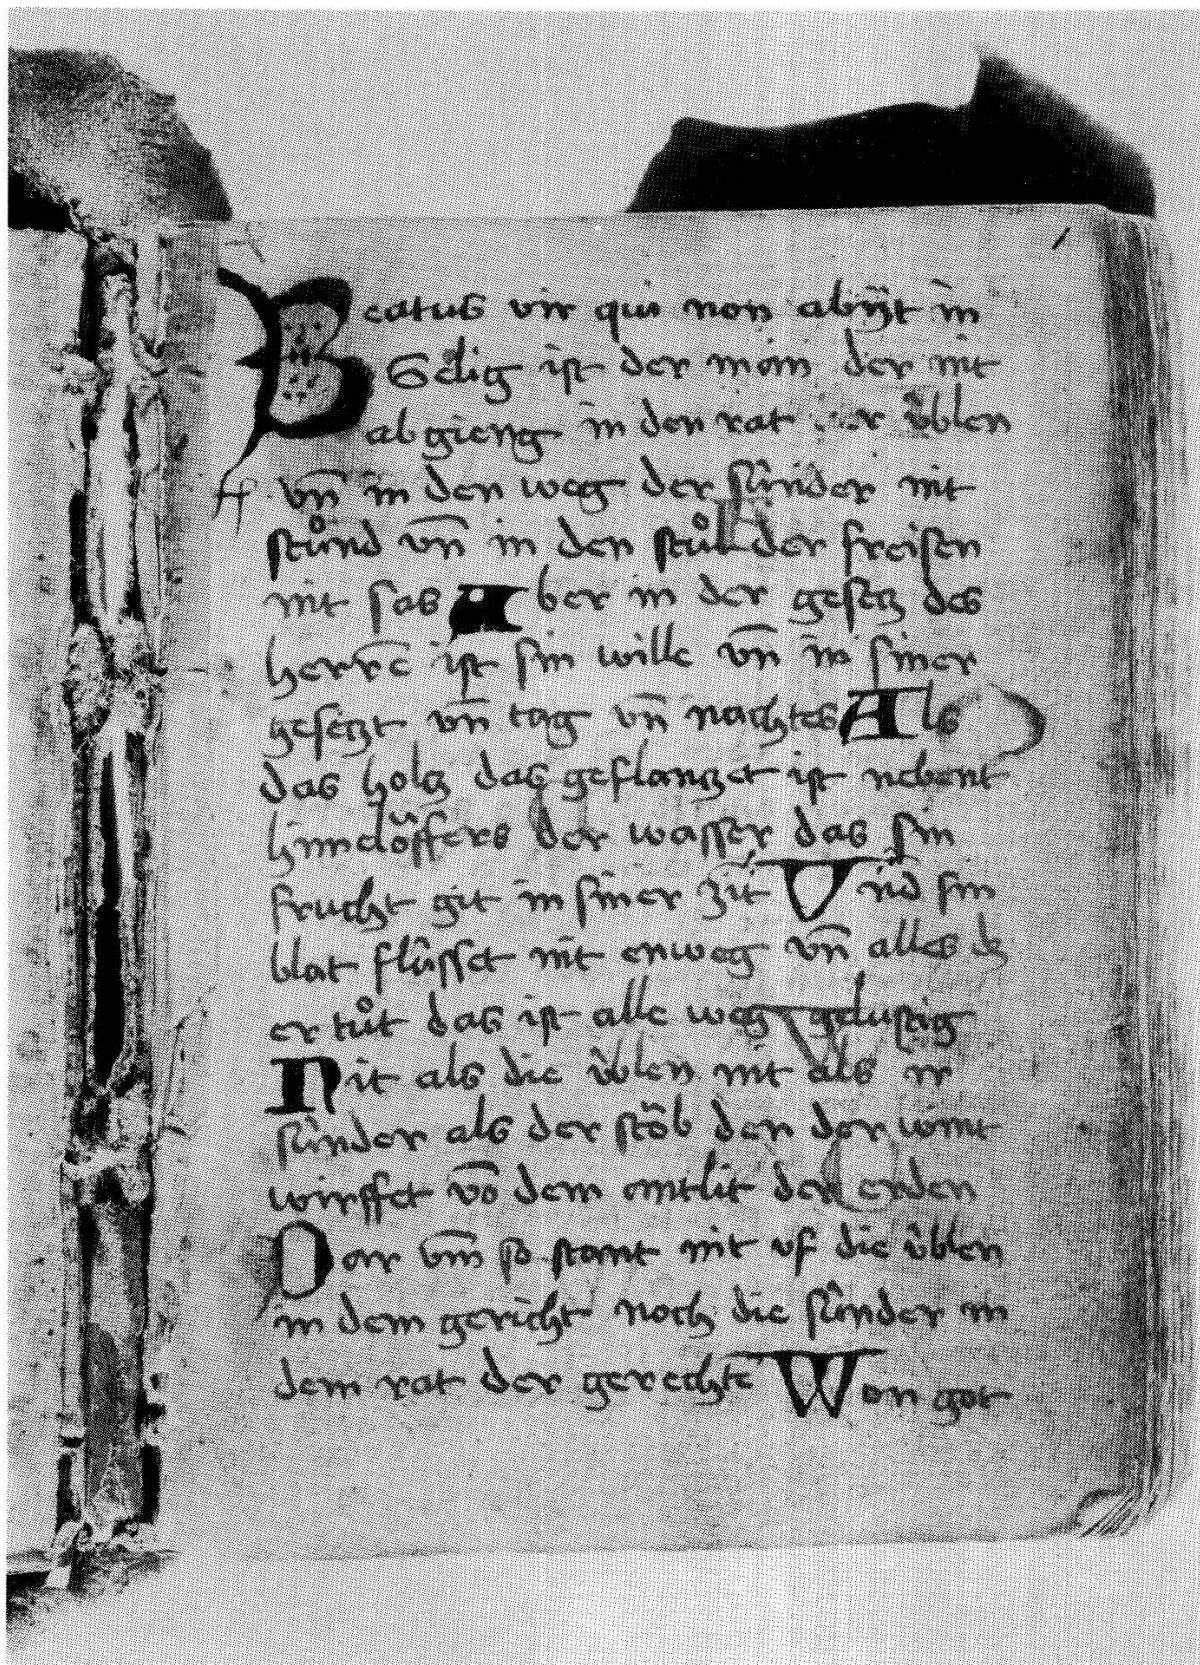 Beatus vir qui non abijt in
Sêlig ist der man der nit
abgieng in den rat der úblen
vn̄ in den weg der súnder nit
stůnd vn̄ in den stůl der freisen
nit sas Aber in der gesetz des
herrē ist sin wille vn̄ in siner
gesetzt vn̄ tag vn̄ nachtes Als
das holtz das geflanzet ist nebent
der wasser das sin
frucht git in siner zit Vnd sin
blat flússet nit enweg vn̄ alles dz
er tůt das ist alle weg gelustig
Nit als die úblen nit als ir
súnder als der stôb den der wint
wirffet vō dem antlit der erden
Dar vm̄ so stant nit vf die úblen
in dem gericht noch die súnder in
dem rat der gerechtē Wan got